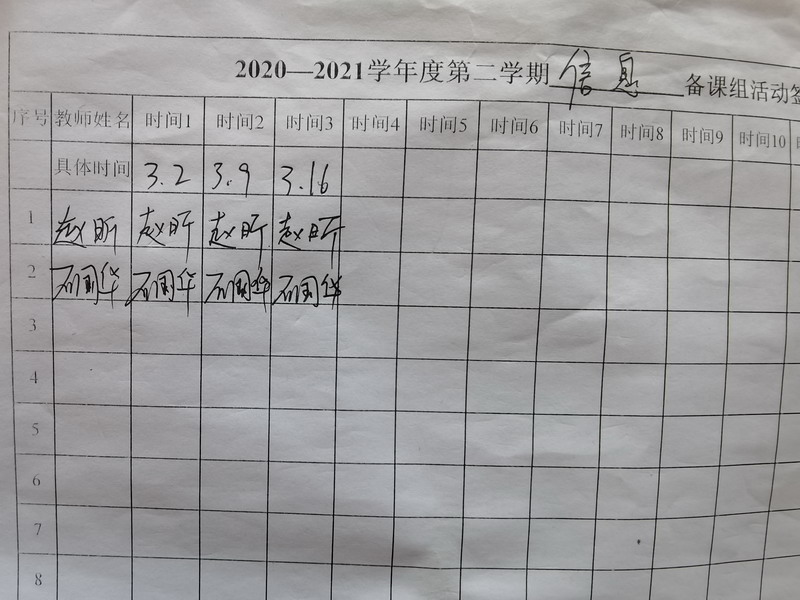 2020—2021学年度第二学期 信息 备课组活动签
序号 教师姓名 时间1 时间2 时间3 时间4 时间5 时间6 时间7 时间8 时间9 时间10
具体时间 3.2 3.9 3.16
1 赵昕 赵昕 赵昕 赵昕
2 石国华 石国华 石国华 石国华
3
4
5
6
7
8